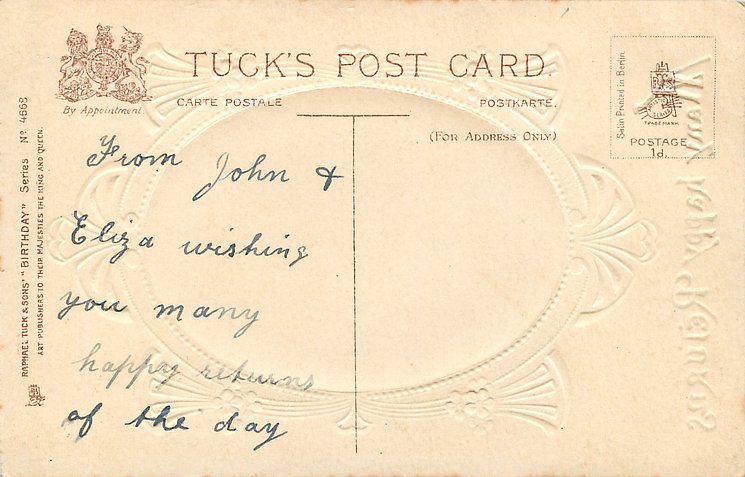 TUCK'S POST CARD.
By Appointment.
CARTE POSTALE
POSTKARTE.
(FOR ADDRESS ONLY)
Satin Printed in Berlin.
TRADE MARK
POSTAGE
1d.
RAPHAEL TUCK & SONS' "BIRTHDAY" Series No. 4668
ART PUBLISHERS TO THEIR MAJESTIES THE KING AND QUEEN.
From John &
Eliza wishing
you many
happy returns
of the day
Many happy Returns